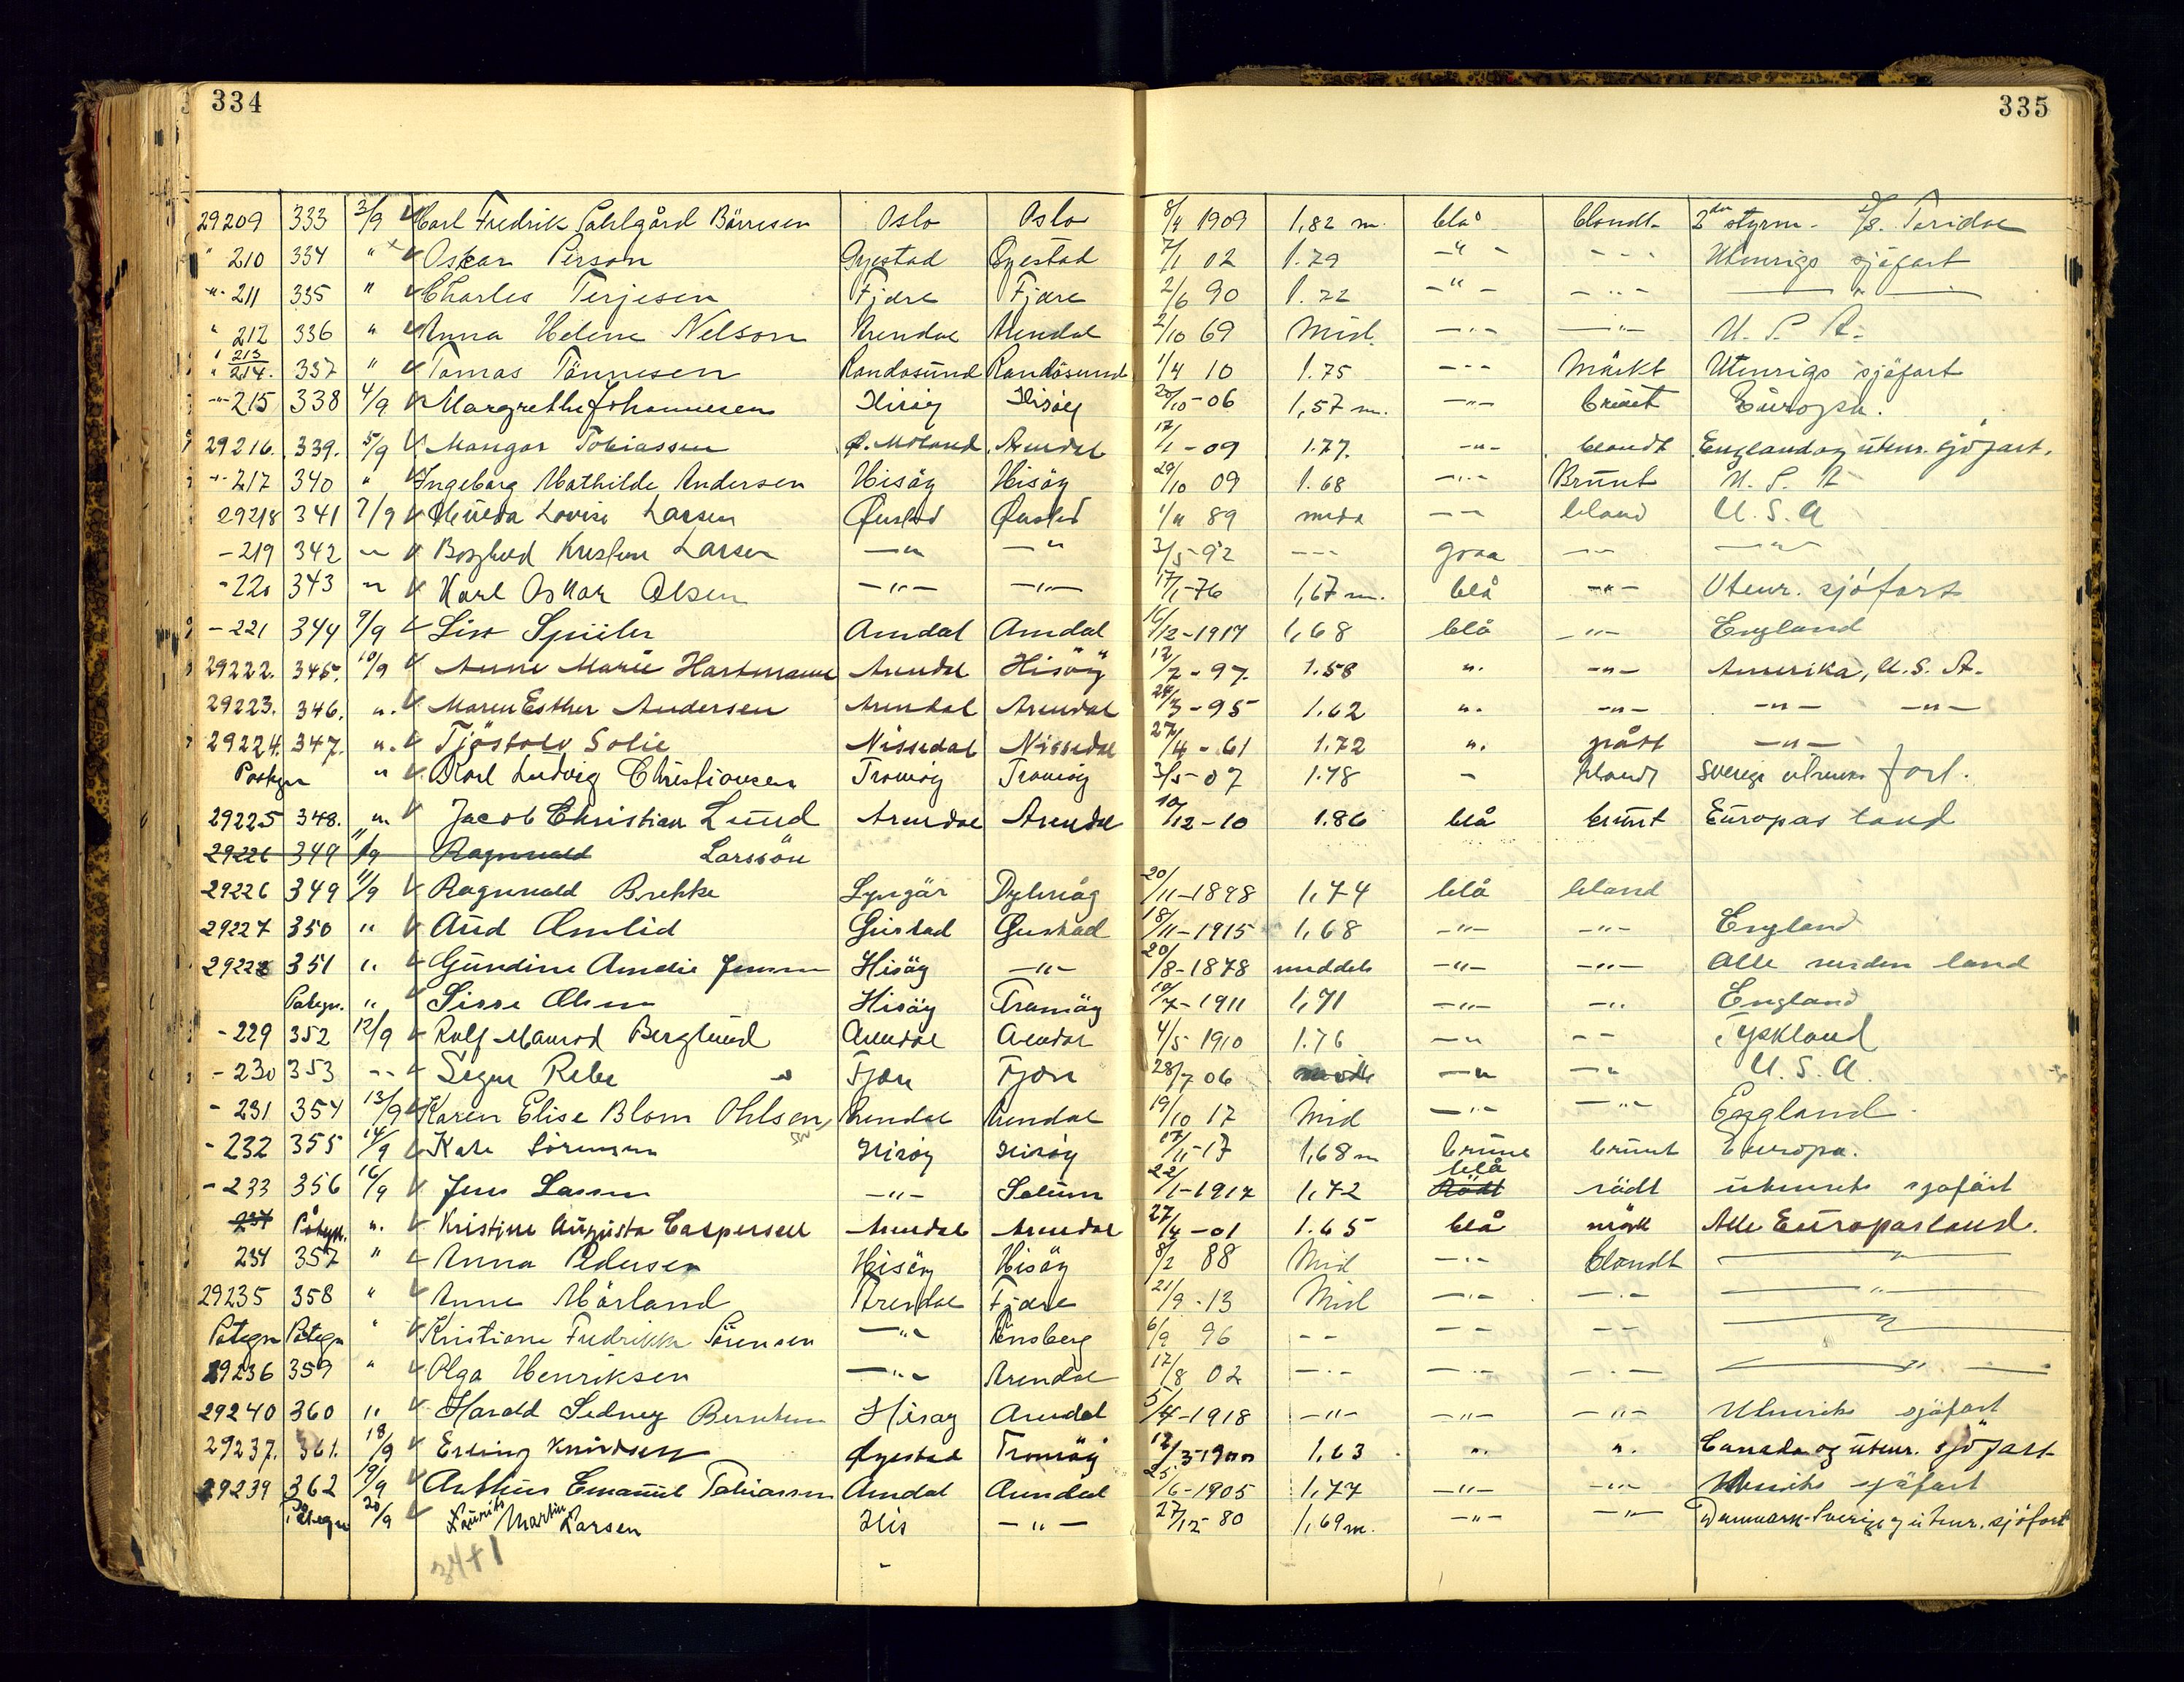 334
335
29209 333 3/9 Carl Fredrik Dahlgård Börresen Oslo Oslo 8/4 1909 1,82 m. blå blondt 2den styrm. T/S. Taridae
" 210 334 " Oskar Pirson Öyestad Öyestad 7/1 02 1.79 -"- - - - Utenrigs sjöfart
-"- 211 335 " Charles Terjesen Fjære Fjære 2/6 90 1.72 -"- -"- -"-
" 212 336 " Anna Helene Nelson Arendal Arendal 2/10 69 Mid. -"- -"- U. S. A.
" 213
" 214. 337 " Tomas Tönnesen Randösund Randösund 1/4 10 1.75 -"- Mörkt Utenrigs sjöfart
-"- 215 338 4/9 Margrethe Johannesen Hisöy Hisöy 20/10-06 1,57 m. -"- brünt Europa.
29216. 339. 5/9 Mangor Tobiassen Ö. Moland Arendal 17/1-09 1.77. -"- blondt England og utenr. sjöfart.
-"- 217 340 " Ingeborg Mathilde Andersen Hisöy Hisöy 29/10 09 1.68 -"- Brünt U. S. A
29218 341 7/9 Hulda Lovise Larsen Öiestad Öiestad 1/11 89 midd - - blond U. S. A
-219 342 -"- Borghild Kristine Larsen -"- -"- 3/5-92 - - - graa - - -"-
-220 343 -"- Karl Oskar Olsen -"- -"- 17/1-76 1,67 m. blå -"- Utenr. sjöfart
-221 344 9/9 Liss Arndal Arndal 16/12-1917 1,68 blå -"- England
29222. 345. 10/9 Anne Marie Hartmann Arendal Hisöy 12/7-97. 1.58 ". -"- Amerika, U. S. A.
29223. 346. ". Maren Esther Andersen Arendal Arendal 24/3-95 1.62 ". -"- -"- -"-
29224. 347. ". Tjöstolv Solie Nissedal Nissedal 27/4-61 1.72 ". grått -"-
Påtegn " Karl Ludvig Christiansen Tromöy Tromöy 3/5-07 1.78 - blondt Sverige utenriks fart.
29225 348. ". Jacob Christian Lund Arendal Arendal 10/12-10 1.86 blå brünt Europas land
29226 349 11/9 Ragnvald Larssön
29226 349 11/9 Ragnvald Brekke Lyngör Dybvåg 20/11-1898 1,74 blå blond
29227 350 " Aud Omlid Öiestad Öiestad 18/11-1915 1,68 -"- -"- England
29228 351 " Gundine Amelie Jensen Hisöy -"- 20/8-1878 middels -"- -"- Alle verden land
Påtegn. " Sisse Olsen Hisöy Tromöy 10/7-1911 1,71 -"- -"- England
-229 352 12/9 Rolf Manrod Berglund Arendal Arendal 4/5 1910 1.76 -"- - - Tyskland
-230 353 -"- Signe Fjære Fjære 28/7 06 midd -"- -"- U. S. A.
-231 354 13/9 Karen Elise Blom Ohlsen, Arendal Arendal 19/10 17 Mid -"- -"- England.
-232 355 14/9 Kate Sörensen Hisöy Hisöy 17/11-17 1,68 m brune brunt Europa.
-233 356 16/9 Jens Lassen -"- Solum 22/1-1917 1,72 blå Rödt rödt utenriks sjöfart
234 Påtegn. ". Kristine Augusta Caspersen Arendal Arendal 27/4-01 1.65 blå mörk Alle Europas land.
234 357 " Anna Pedersen Hisöy Hisöy 8/2 88 Mid -"- blondt -"-
29235 358 " Anne Mörland Arendal Fjære 21/9-13 Mid -"- -"- -"-
Påtegn Påtegn " Kristiane Fredrikke Sörensen -"- Tönsberg 6/9 96 - - - - - - -"-
29236 359 " Olga Henriksen -"- Arendal 17/8 02 -"- -"- -"- -"-
29240 360 " Harald Sidney Berntsen Hisöy Arendal 5/4-1918 -"- -"- -"- Utenriks sjöfart
29237. 361. 18/9 Erling Knudsen Öyestad Tromöy 12/3-1900 1,63 ". ". Canada og utenr. sjöfart
29239 362 19/9 Arthur Emanuel Tobiassen Arndal Arendal 25/6-1905 1,77 -"- -"- Utenriks sjöfart
Påtegn 20/9 Laurits Martin Larsen His -"- 27/12-80 1,69 m. -"- -"- Danmark-Sverige og utenr. sjöfart
34+1